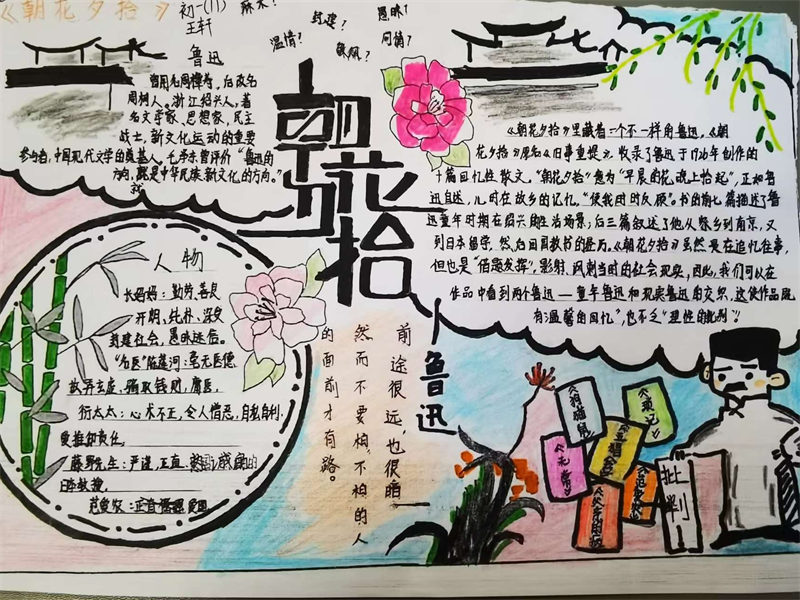 《朝花夕拾》
初一(11)
王轩
麻木?
封建?
愚昧?
温情?
讽刺?
同情?
鲁迅
曾用名周樟寿,后改名
周树人。浙江绍兴人。著
名文学家、思想家,民主
战士,新文化运动的重要
参与者,中国现代文学的奠基人。毛泽东曾评价“鲁迅的
方向,就是中华民族新文化的方向。”
朝花夕拾
《朝花夕拾》里藏着一个不一样的鲁迅。《朝
花夕拾》原名《旧事重提》。收录了鲁迅于1926年创作的
十篇回忆性散文。“朝花夕拾”意为“早晨的花晚上拾起”,正和鲁
迅自述,儿时在故乡的记忆,
书的前七篇描述了鲁
迅童年时期在绍兴的生活场景;后三篇叙述了他从家乡到南京,又
到日本留学,然后回国教书的经历。《朝花夕拾》虽然是在追忆往事,
但也是“借题发挥”,影射、讽刺当时的社会现实,因此,我们可以在
作品中看到两个鲁迅——童年鲁迅和现实鲁迅的交织,这使作品既
有“温馨的回忆”,也不乏“理性的批判”!
人物
长妈妈:勤劳、善良
开朗、纯朴、深受
封建社会,愚昧迷信。
“名医”陈莲河:毫无医德
故弄玄虚、骗取钱财,庸医。
衍太太:心术不正,令人憎恶,自私自利、
爱推卸责任。
藤野先生:严谨,正直
日本教授。
范爱农:正直倔强爱国
前途很远,也很暗——
然而不要怕。不怕的人
的面前才有路。
——鲁迅
《狗猫鼠》
《琐记》
《无常》
《五猖会》
《父亲的病》
批判